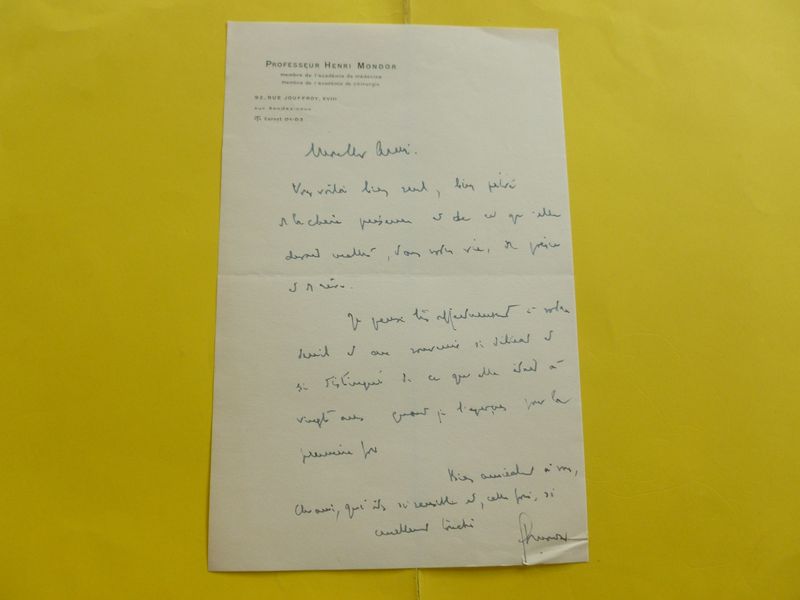 PROFESSEUR HENRI MONDOR
membre de l'académie de médecine
membre de l'académie de chirurgie
92, RUE JOUFFROY, XVIII
sur Rendez-vous
Carnot 01-03
Mon cher ami.
Vous voilà bien seul, bien privé
de la chère présence et de ce qu'elle
devait mettre, dans votre vie, de
et de rêve.
Je pense très affectueusement à votre
deuil et au souvenir si délicat et
si distingué de ce que elle était à
vingt ans quand je l'aperçus pour la
première fois
Bien amicalement à vous,
cher ami, qui êtes si sensible et, cette fois, si
cruellement touché
HMondor